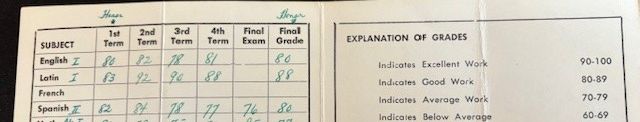 Honor Honor
SUBJECT 1st Term 2nd Term 3rd Term 4th Term Final Exam Final Grade
English I 80 82 78 81 80
Latin I 83 92 90 88 88
French
Spanish II 82 84 78 77 76 80
EXPLANATION OF GRADES
Indicates Excellent Work 90-100
Indicates Good Work 80-89
Indicates Average Work 70-79
Indicates Below Average 60-69